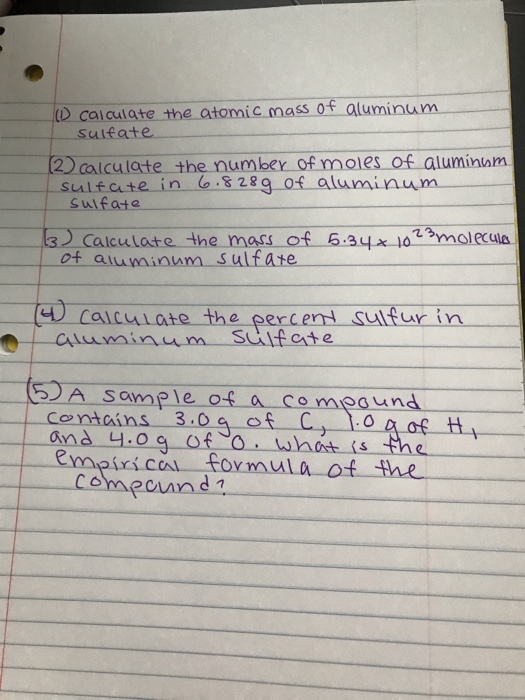 (1) calculate the atomic mass of aluminum
sulfate
(2) calculate the number of moles of aluminum
sulfate in 6.828g of aluminum
sulfate
(3) Calculate the mass of 5.34 x 10^23 molecules
of aluminum sulfate
(4) Calculate the percent sulfur in
aluminum sulfate
(5) A sample of a compound
contains 3.0g of C, 1.0 g of H,
and 4.0g of O. What is the
empirical formula of the
compound?